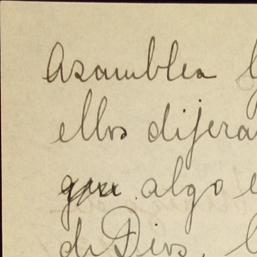 Asamblea
ellos dijera
que algo e
de Dios.